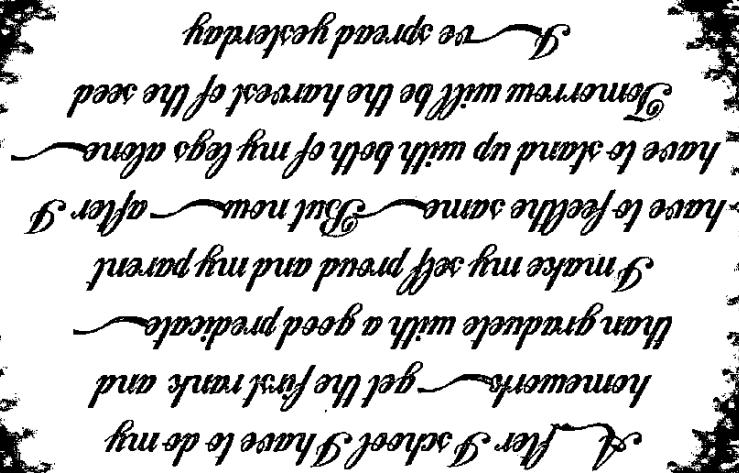 After I school I have to do my
homework get the first rank and
than graduete with a good predicate
I make my self proud and my parent
have to feel the same But now after I
have to stand up with both of my legs alone
Tomorrow will be the harvest of the seed
I ve spread yesterday